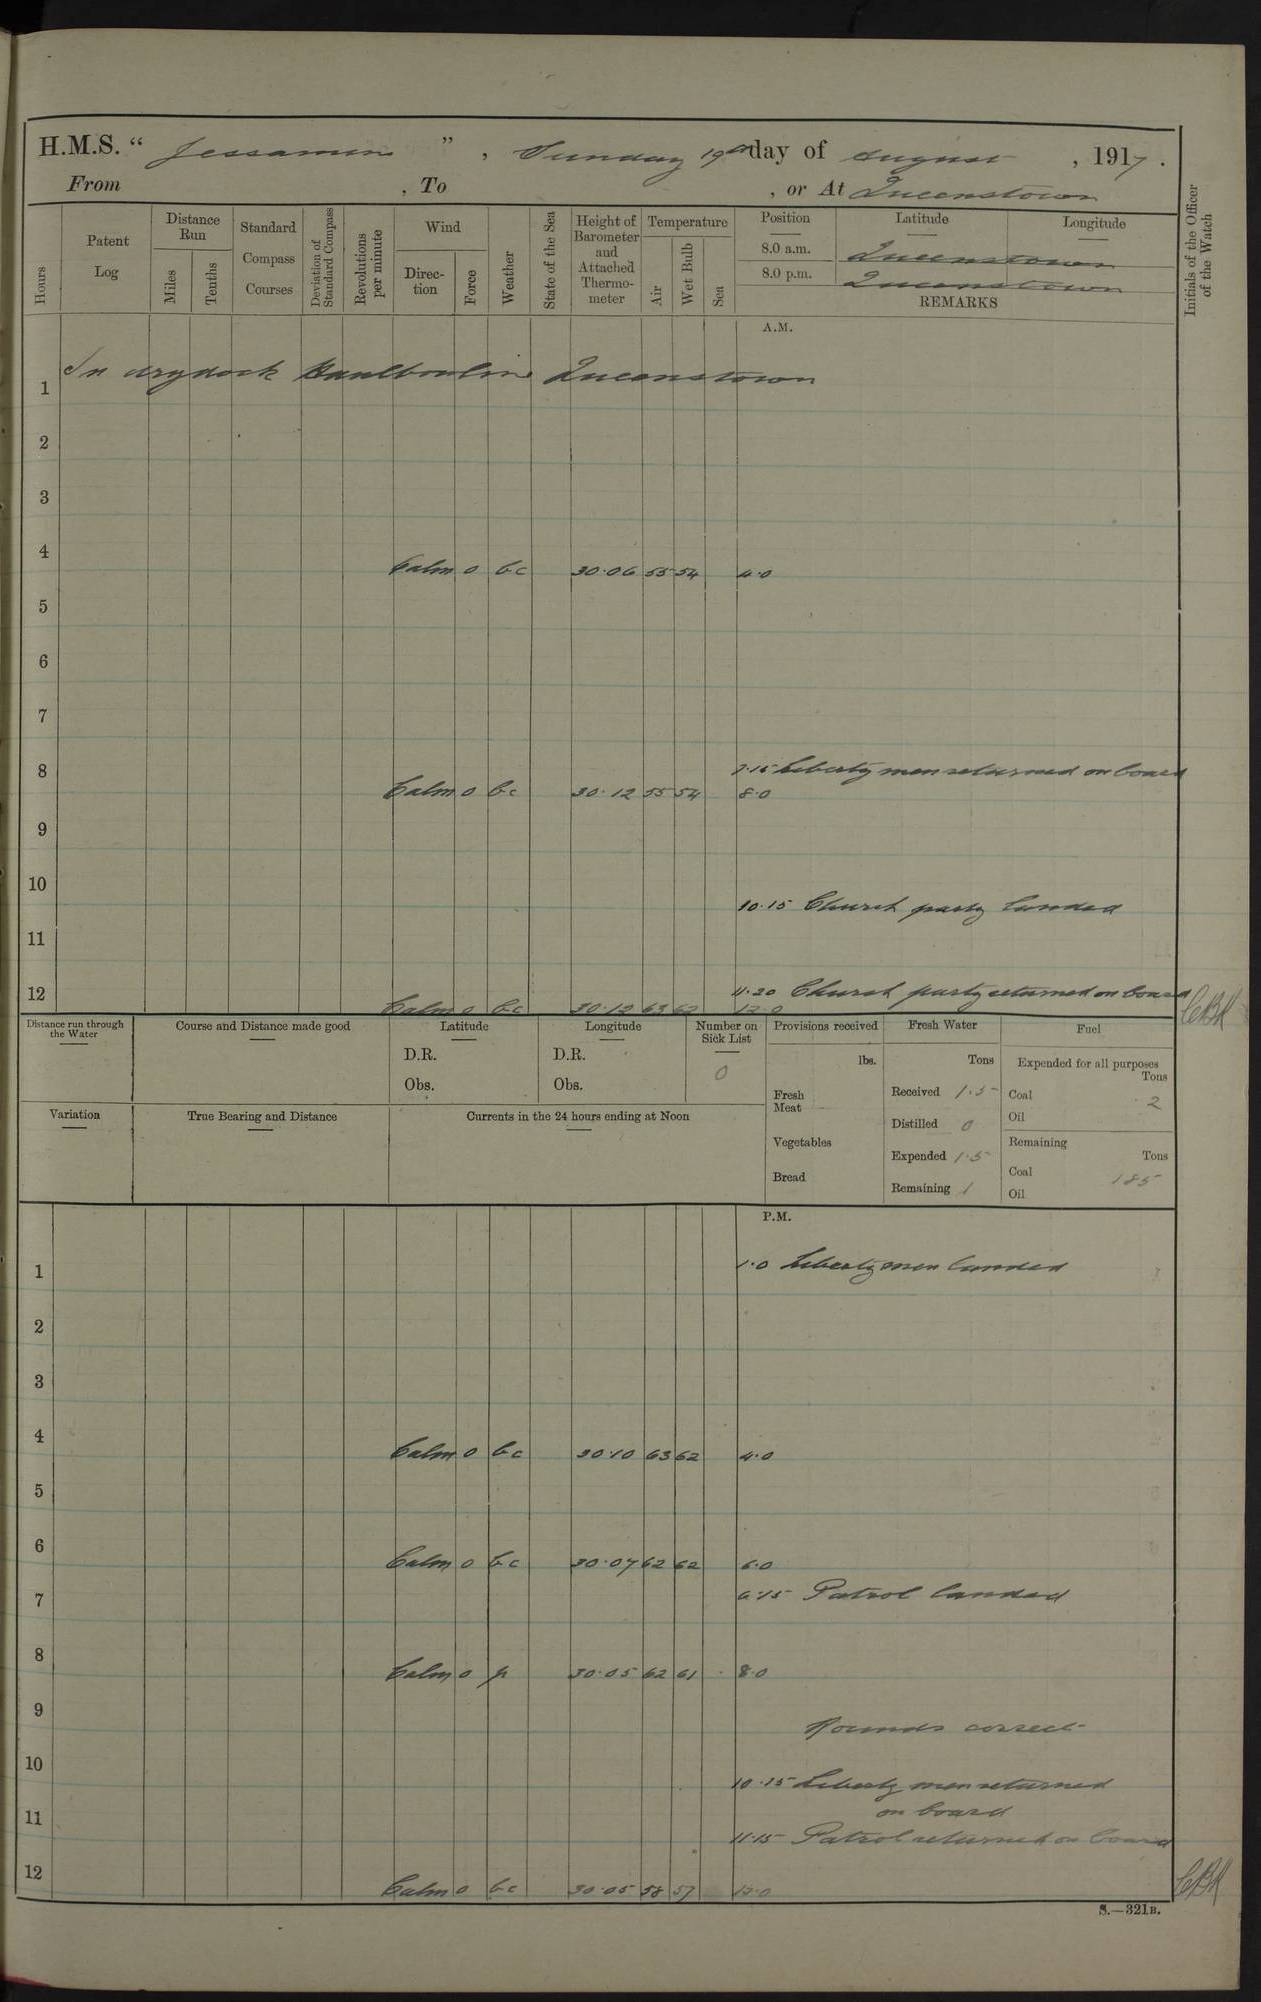 H.M.S. “ Jessamine ” , Sunday 19th day of August , 1917 .
From , To , or At Queenstown
Hours
Patent Log
Distance Run
Miles
Tenths
Standard Compass Courses
Deviation of Standard Compass
Revolutions per minute
Wind
Direc-tion
Force
Weather
State of the Sea
Height of Barometer and Attached Thermo-meter
Temperature
Air
Wet Bulb
Sea
Position Latitude Longitude
8.0 a.m. Queenstown
8.0 p.m. Queenstown
REMARKS
Initials of the Officer of the Watch
A.M.
In drydock Haulbouline Queenstown
1
2
3
4 Calm 0 bc 30.06 55 54 4.0
5
6
7
7.15 Liberty men returned on board
8 Calm 0 bc 30.12 55 54 8.0
9
10
10.15 Church party landed
11
11.20 Church party returned on board
12 Calm 0 bc 30.12 63 62 12.0
Distance run through the Water
Course and Distance made good
Latitude
D.R.
Obs.
Longitude
D.R.
Obs.
Number on Sick List
0
Provisions received
lbs.
Fresh Meat
Vegetables
Bread
Fresh Water
Tons
Received 1.5
Distilled 0
Expended 1.5
Remaining 1
Fuel
Expended for all purposes
Tons
Coal 2
Oil
Remaining
Tons
Coal 185
Oil
Variation
True Bearing and Distance
Currents in the 24 hours ending at Noon
P.M.
1 1.0 Liberty men landed
2
3
4 Calm 0 bc 30.10 63 62 4.0
5
6 Calm 0 bc 30.07 62 62 6.0
6.15 Patrol landed
7
8 Calm 0 p 30.05 62 61 8.0
9 Rounds correct
10
10.15 Liberty men returned
on board
11
11.15 Patrol returned on board
12 Calm 0 bc 30.05 58 57 12.0
S.—321B.